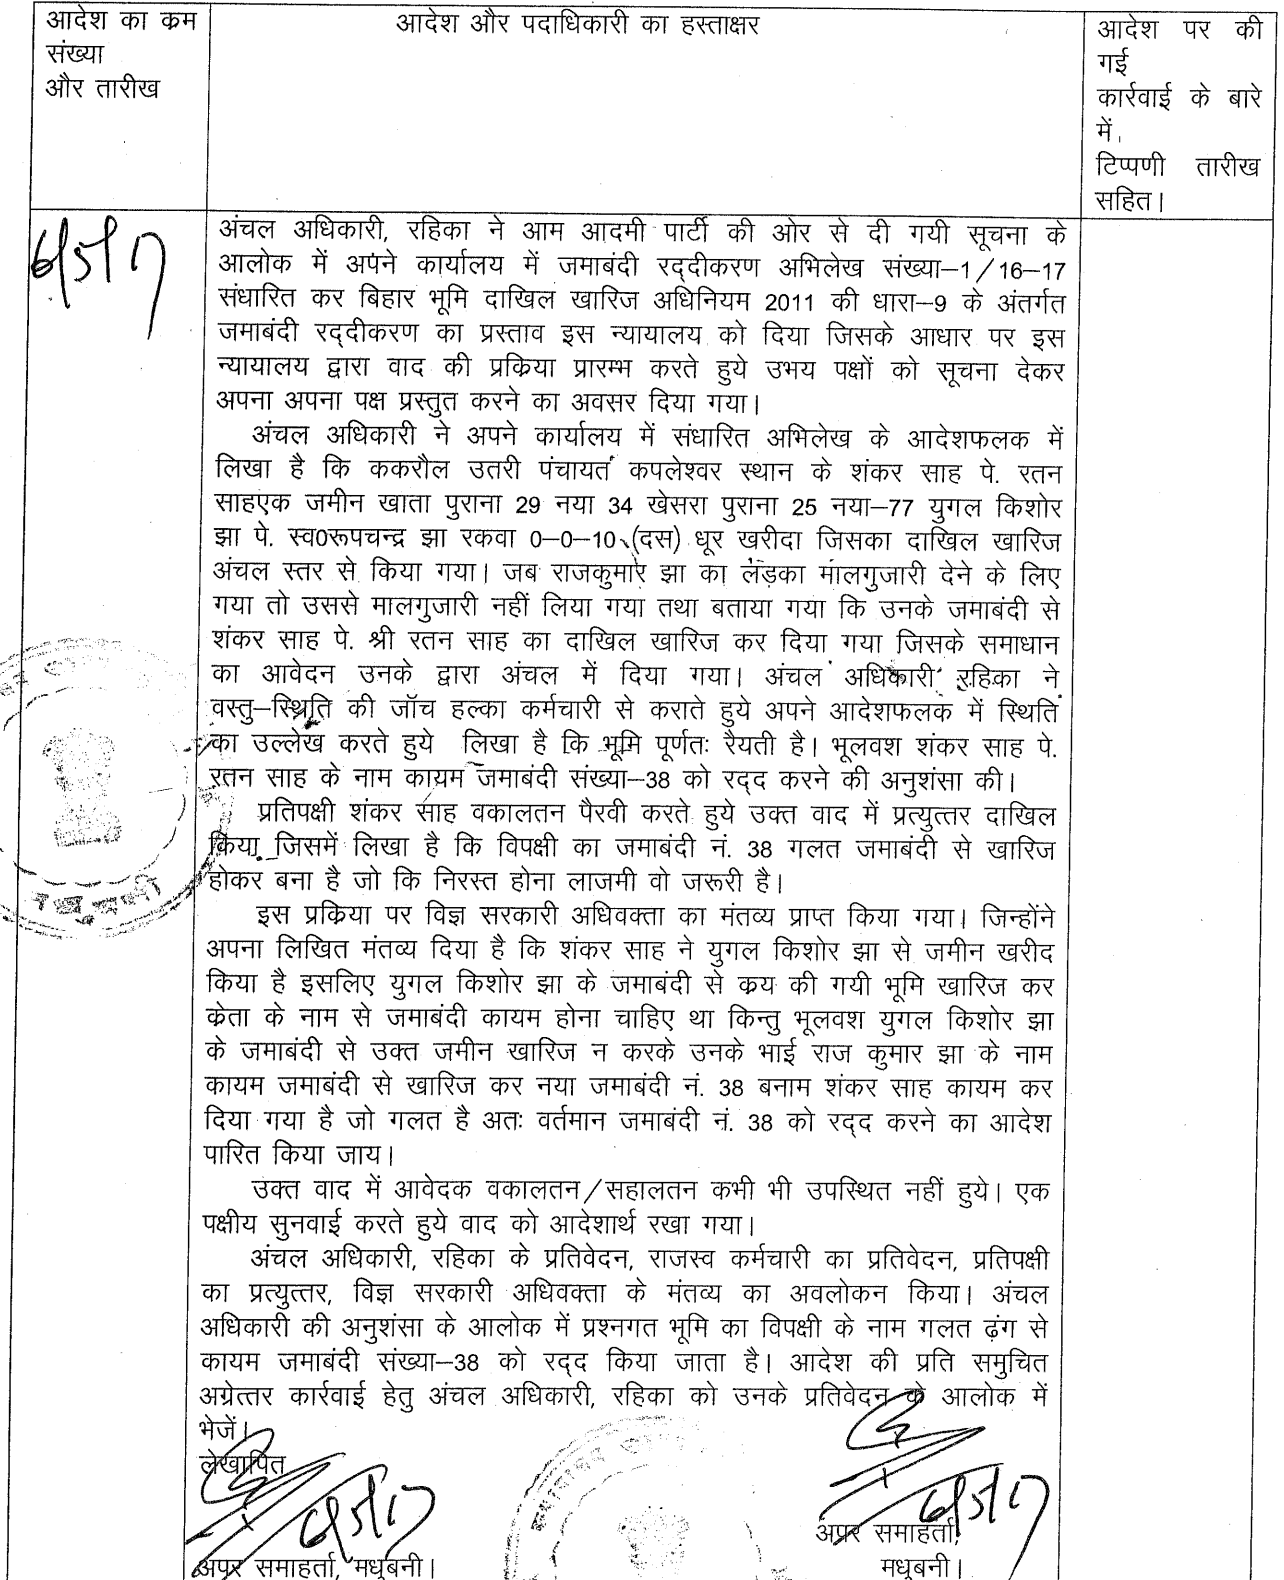 आदेश का कम
संख्या
और तारीख
आदेश और पदाधिकारी का हस्ताक्षर
आदेश पर की
गई
कार्रवाई के बारे
में,
टिप्पणी तारीख
सहित।
6/5/17
अंचल अधिकारी, रहिका ने आम आदमी पार्टी की ओर से दी गयी सूचना के
आलोक में अपने कार्यालय में जमाबंदी रद्दीकरण अभिलेख संख्या–1/16–17
संधारित कर बिहार भूमि दाखिल खारिज अधिनियम 2011 की धारा–9 के अंतर्गत
जमाबंदी रद्दीकरण का प्रस्ताव इस न्यायालय को दिया जिसके आधार पर इस
न्यायालय द्वारा वाद की प्रकिया प्रारम्भ करते हुये उभय पक्षों को सूचना देकर
अपना अपना पक्ष प्रस्तुत करने का अवसर दिया गया।
अंचल अधिकारी ने अपने कार्यालय में संधारित अभिलेख के आदेशफलक में
लिखा है कि ककरौल उतरी पंचायत कपलेश्वर स्थान के शंकर साह पे. रतन
साहएक जमीन खाता पुराना 29 नया 34 खेसरा पुराना 25 नया–77 युगल किशोर
झा पे. स्व0रूपचन्द्र झा रकवा 0–0–10 (दस) धूर खरीदा जिसका दाखिल खारिज
अंचल स्तर से किया गया। जब राजकुमार झा का लड़का मालगुजारी देने के लिए
गया तो उससे मालगुजारी नहीं लिया गया तथा बताया गया कि उनके जमाबंदी से
शंकर साह पे. श्री रतन साह का दाखिल खारिज कर दिया गया जिसके समाधान
का आवेदन उनके द्वारा अंचल में दिया गया। अंचल अधिकारी रहिका ने
वस्तु–स्थिति की जॉच हल्का कर्मचारी से कराते हुये अपने आदेशफलक में स्थिति
का उल्लेख करते हुये लिखा है कि भूमि पूर्णतः रैयती है। भूलवश शंकर साह पे.
रतन साह के नाम कायम जमाबंदी संख्या–38 को रद्द करने की अनुशंसा की।
प्रतिपक्षी शंकर साह वकालतन पैरवी करते हुये उक्त वाद में प्रत्युत्तर दाखिल
किया जिसमें लिखा है कि विपक्षी का जमाबंदी नं. 38 गलत जमाबंदी से खारिज
होकर बना है जो कि निरस्त होना लाजमी वो जरूरी है।
इस प्रकिया पर विज्ञ सरकारी अधिवक्ता का मंतव्य प्राप्त किया गया। जिन्होंने
अपना लिखित मंतव्य दिया है कि शंकर साह ने युगल किशोर झा से जमीन खरीद
किया है इसलिए युगल किशोर झा के जमाबंदी से कय की गयी भूमि खारिज कर
केता के नाम से जमाबंदी कायम होना चाहिए था किन्तु भूलवश युगल किशोर झा
के जमाबंदी से उक्त जमीन खारिज न करके उनके भाई राज कुमार झा के नाम
कायम जमाबंदी से खारिज कर नया जमाबंदी नं. 38 बनाम शंकर साह कायम कर
दिया गया है जो गलत है अतः वर्तमान जमाबंदी नं. 38 को रद्द करने का आदेश
पारित किया जाय।
उक्त वाद में आवेदक वकालतन/सहालतन कभी भी उपस्थित नहीं हुये। एक
पक्षीय सुनवाई करते हुये वाद को आदेशार्थ रखा गया।
अंचल अधिकारी, रहिका के प्रतिवेदन, राजस्व कर्मचारी का प्रतिवेदन, प्रतिपक्षी
का प्रत्युत्तर, विज्ञ सरकारी अधिवक्ता के मंतव्य का अवलोकन किया। अंचल
अधिकारी की अनुशंसा के आलोक में प्रश्नगत भूमि का विपक्षी के नाम गलत ढ़ंग से
कायम जमाबंदी संख्या–38 को रद्द किया जाता है। आदेश की प्रति समुचित
अग्रेत्तर कार्रवाई हेतु अंचल अधिकारी, रहिका को उनके प्रतिवेदन के आलोक में
भेजें।
लेखापित
6/5/17
6/5/17
अपर समाहर्ता,
अपर समाहर्ता, मधुबनी।
मधुबनी।